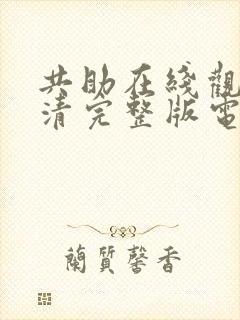 共助在綫觀
清完整版電
蘭質馨香